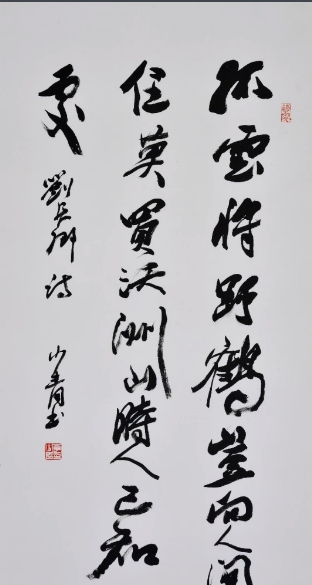 孤雲將野鶴豈向人間
住莫買沃洲山時人已知
處
劉長卿詩
少青书